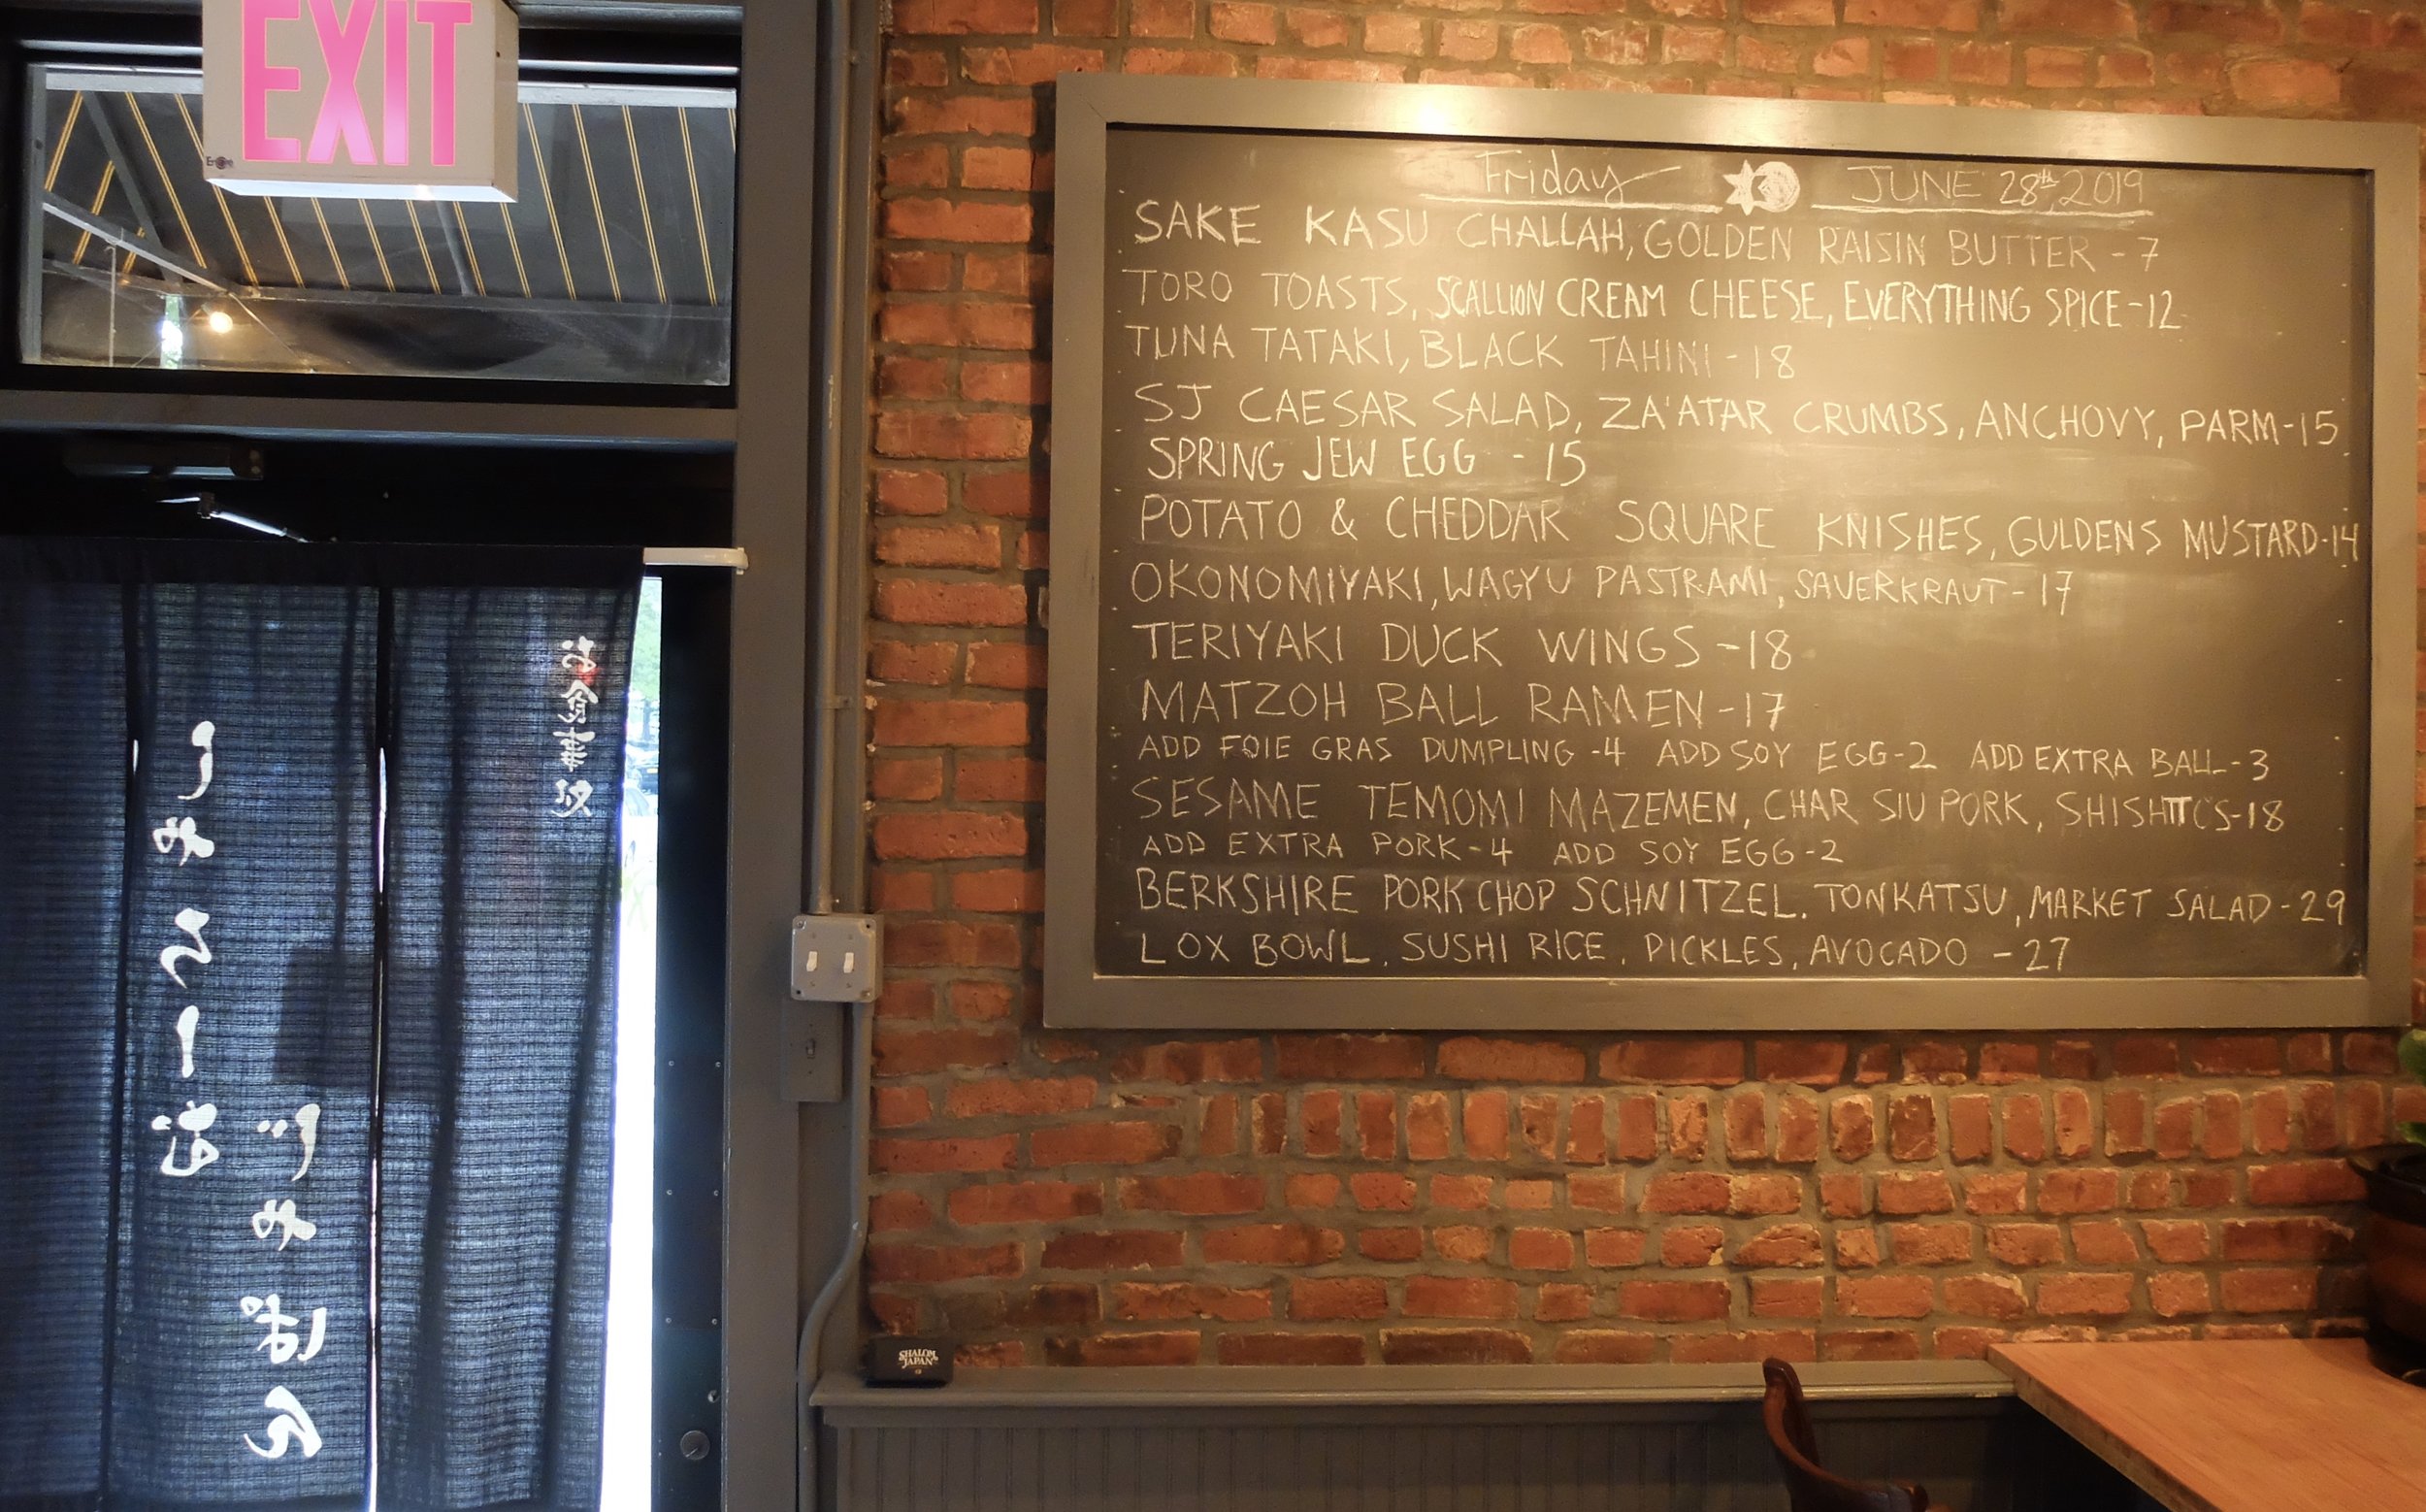 EXIT
お食事処
しゃろーむ
じゃぱん
SHALOM
JAPAN
Friday JUNE 28th, 2019
SAKE KASU CHALLAH, GOLDEN RAISIN BUTTER - 7
TORO TOASTS, SCALLION CREAM CHEESE, EVERYTHING SPICE - 12
TUNA TATAKI, BLACK TAHINI - 18
SJ CAESAR SALAD, ZA'ATAR CRUMBS, ANCHOVY, PARM - 15
SPRING JEW EGG - 15
POTATO & CHEDDAR SQUARE KNISHES, GULDENS MUSTARD - 14
OKONOMIYAKI, WAGYU PASTRAMI, SAUERKRAUT - 17
TERIYAKI DUCK WINGS - 18
MATZOH BALL RAMEN - 17
ADD FOIE GRAS DUMPLING - 4 ADD SOY EGG - 2 ADD EXTRA BALL - 3
SESAME TEMOMI MAZEMEN, CHAR SIU PORK, - 18
ADD EXTRA PORK - 4 ADD SOY EGG - 2
BERKSHIRE PORK CHOP SCHNITZEL. TONKATSU, MARKET SALAD - 29
LOX BOWL, SUSHI RICE, PICKLES, AVOCADO - 27